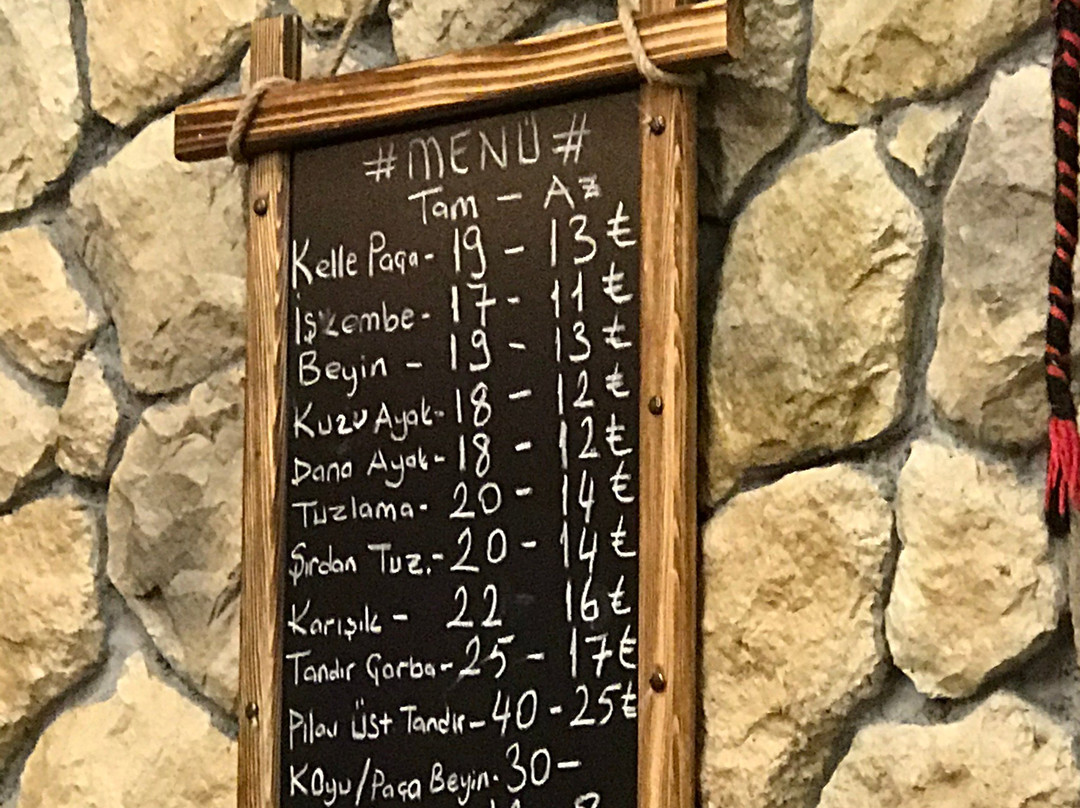 #MENÜ#
Tam - Az
Kelle Paça- 19 - 13 ₺
İşkembe- 17- 11 ₺
Beyin - 19 - 13 ₺
Kuzu Ayak- 18 - 12 ₺
Dana Ayak- 18 - 12 ₺
Tuzlama- 20 - 14 ₺
Şırdan Tuz.- 20 - 14 ₺
Karışık - 22 16 ₺
Tandır Çorba- 25 - 17 ₺
Pilav Üst Tandır- 40 - 25 ₺
Koyu/Paça Beyin- 30-